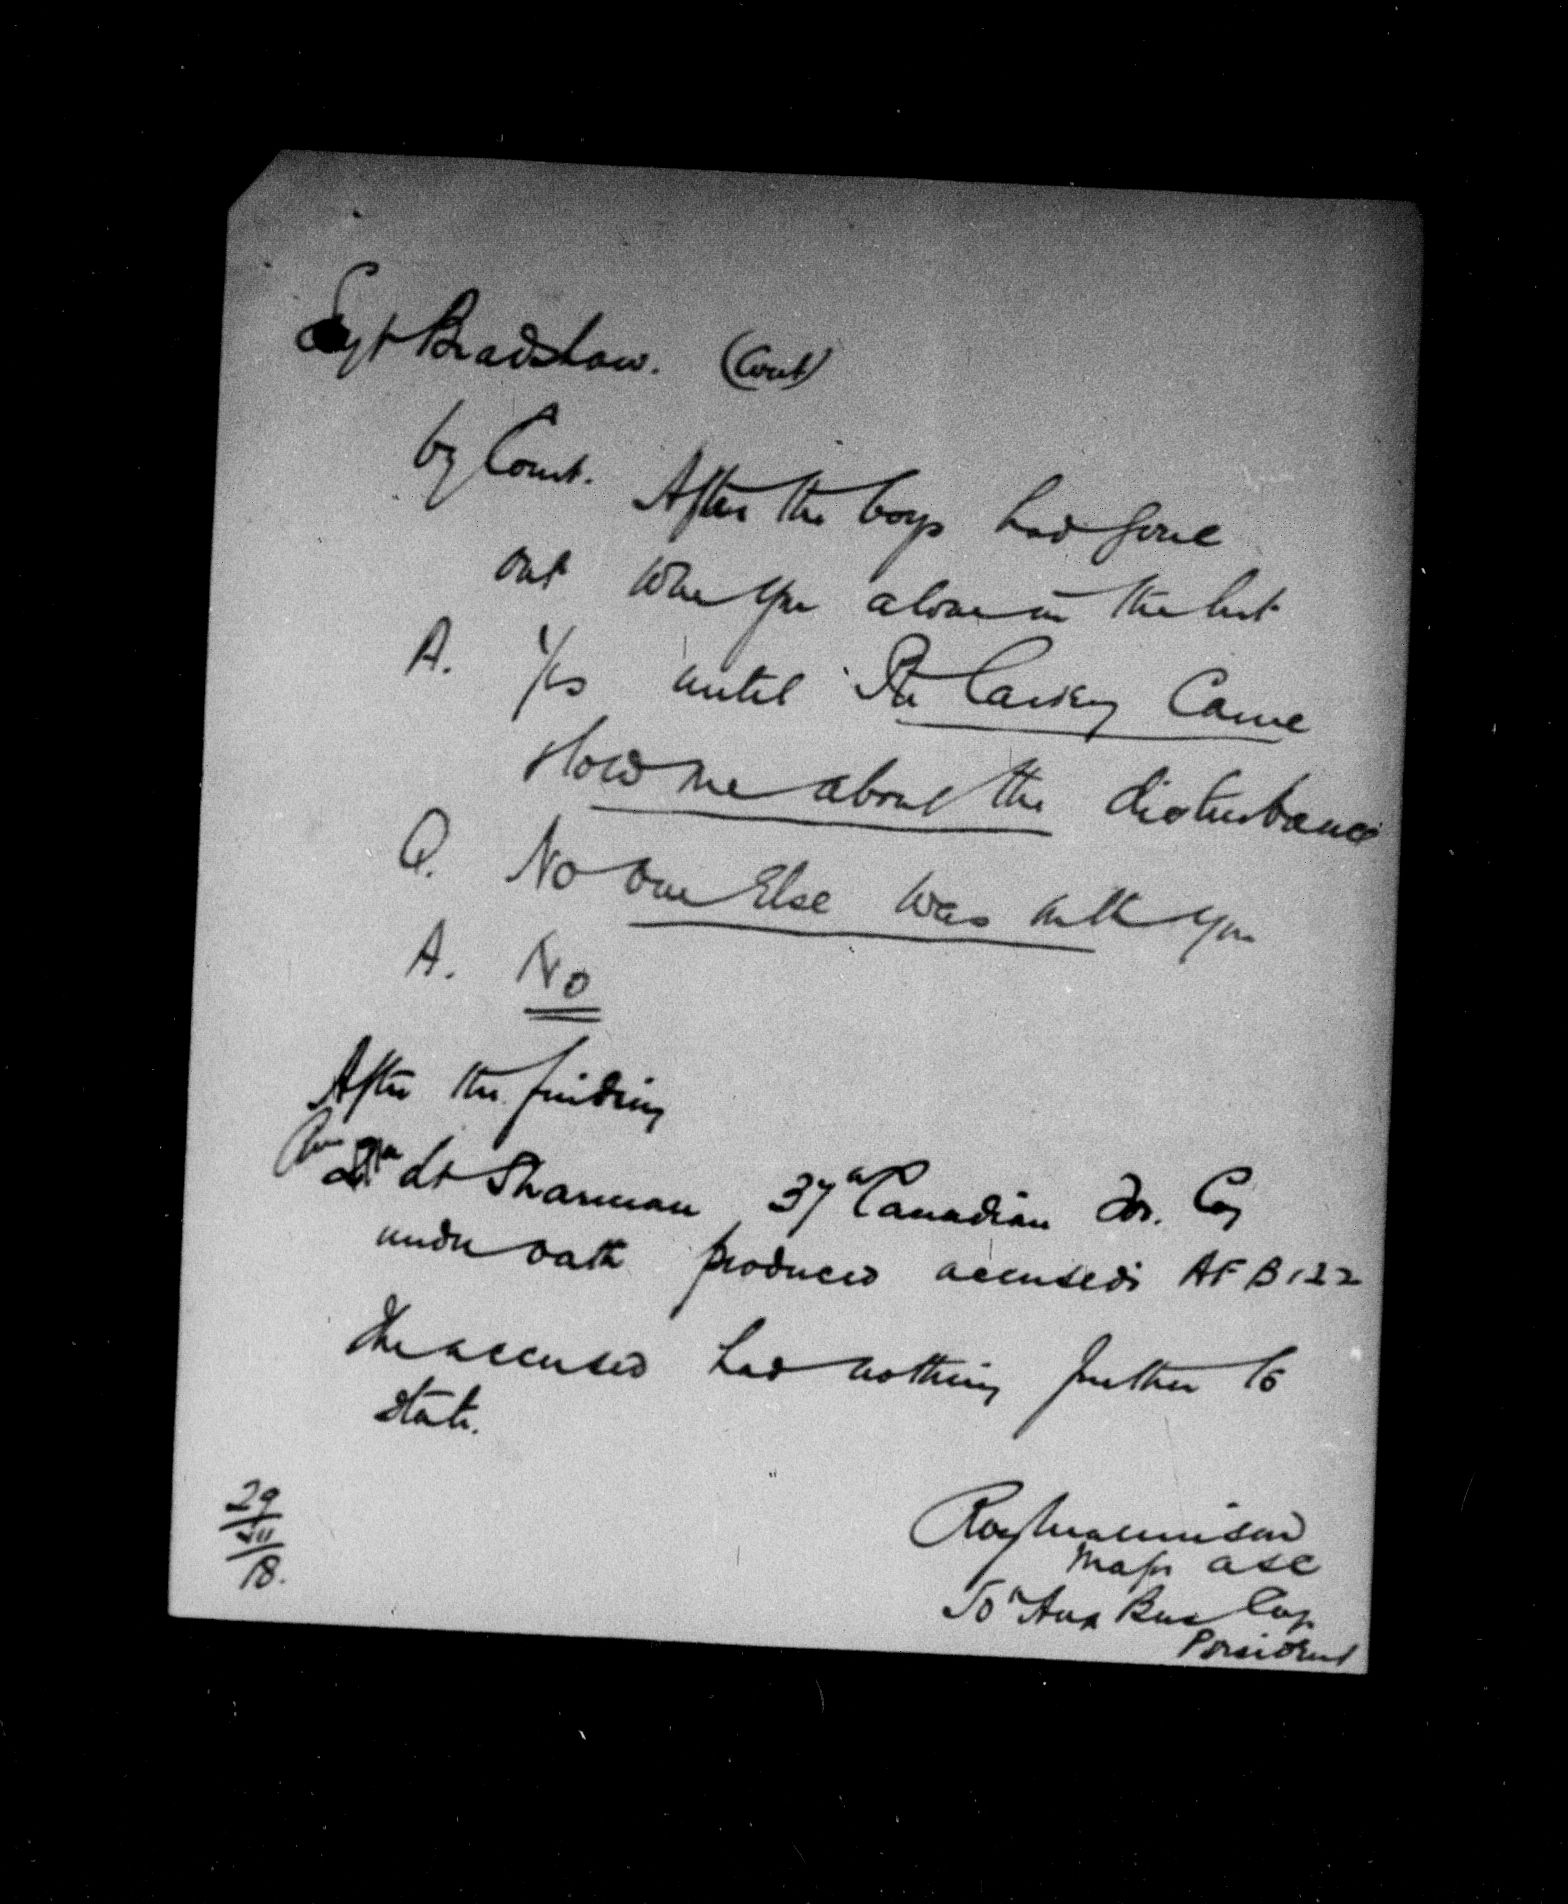 Sgt Bradshaw. (Cont)
by Court. After the boys had gone
out were you alone in the hut
A. Yes until Pte Caisey Came
& told me about the disturbance
Q. No one Else was with you
A. No
After the finding
Lt Sharman 37th Canadian For. Coy
under oath produced accused's AF B 122
The accused had nothing further to
state.
29
VII
18.
Major ASC
Aux Bus Coy
President